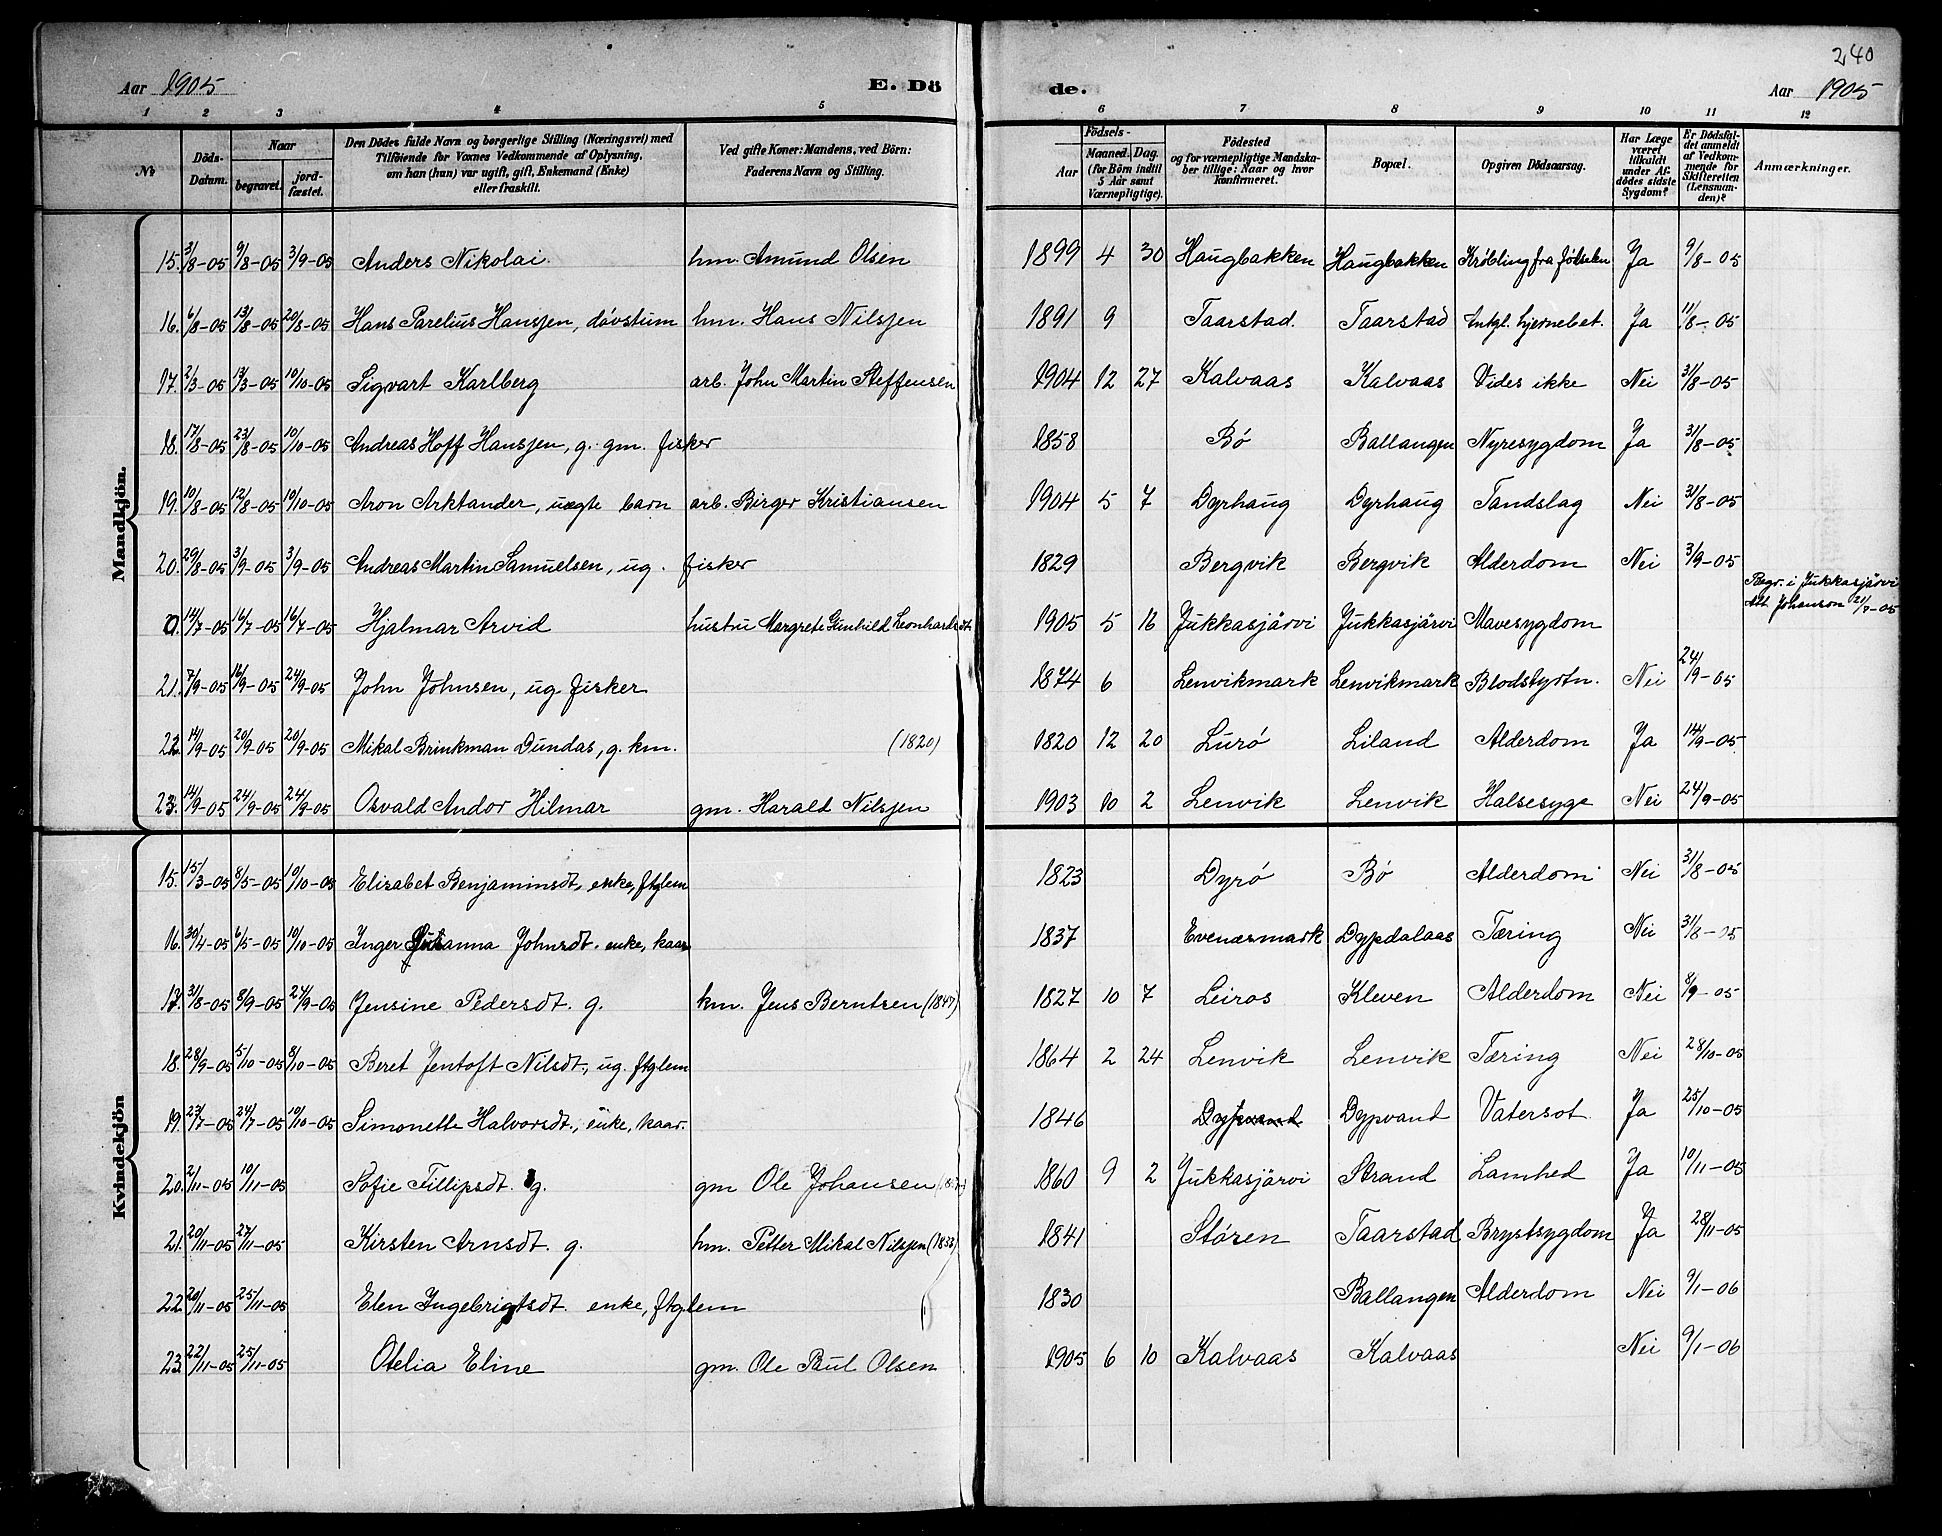 240
Aar 1905 E. Dö de. Aar 1905
1 2 3 4 5 6 7 8 9 10 11 12
№ Döds-Datum. Naar begravet. jord-fæstet. Den Dödes fulde Navn og borgerlige Stilling (Næringsvei) med Tilföiende for Voxnes Vedkommende af Oplysning, om han (hun) var ugift, gift, Enkemand (Enke) eller fraskilt. Ved gifte Koner: Mandens, ved Börn: Faderens Navn og Stilling. Födsels- Aar Maaned. Dag. (for Börn indtil 5 Aar samt Værnepligtige). Födested og for værnepligtige Mandskaber tillige: Naar og hvor konfirmeret. Bopæl. Opgiven Dödsaarsag. Har Læge været tilkaldt under Afdödes sidste Sygdom? Er Dödsfaldet anmeldt af Vedkommende for Skifteretten (Lensmanden)? Anmærkninger.
Mandkjön.
15. 3/8-05 9/8-05 3/9-05 Anders Nikolai. hm. Amund Olsen 1899 4 30 Haugbakken Haugbakken Krøbling fra fødselen Ja 9/8-05
16. 6/8-05 13/8-05 20/8-05 Hans Parelius Hansjen, døvstum hm. Hans Nilsjen 1891 9 Taarstad. Taarstad hjernebet. Ja 11/8-05
17. 2/3-05 13/3-05 10/10-05 Sigvart Karlberg arb. John Martin Steffensen 1904 12 27 Kalvaas Kalvaas Vides ikke Nei 31/8-05
18. 17/8-05 23/8-05 10/10-05 Andreas Hoff Hansjen, g. gm. fisker 1858 Bø Ballangen Nyresygdom Ja 31/8-05
19. 10/8-05 12/8-05 10/10-05 Aron Arktander, uægte barn arb. Birger Kristiansen 1904 5 7 Dyrhaug Dyrhaug Tandslag Nei 31/8-05
20. 29/8-05 3/9-05 3/9-05 Andreas Martin Samuelsen, ug. fisker 1829 Bergvik Bergvik Alderdom Nei 3/9-05
0. 14/7-05 16/7-05 16/7-05 Hjalmar Arvid hustru Margrete Gunhild Leonhardsdt. 1905 5 16 Jukkasjärvi Jukkasjärvi Mavesygdom Begr. i Jukkasjärvi Att. Johanson 21/7-05
21. 7/9-05 16/9-05 24/9-05 John Johnsen, ug. fisker 1874 6 Lenvikmark Lenvikmark Blodstyrtn. Nei 24/9-05
22. 14/9-05 20/9-05 20/9-05 Mikal Brinkman Dundas, g. km. (1820) 1820 12 20 Lurø Liland Alderdom Ja 14/9-05
23. 14/9-05 24/9-05 24/9-05 Osvald Andor Hilmar gm. Harald Nilsjen 1903 10 2 Lenvik Lenvik Halsesyge Nei 24/9-05
Kvindekjön
15. 15/3-05 8/5-05 10/10-05 Elisabet Benjaminsdt, enke, ftglem 1823 Dyrø Bø Alderdom Nei 31/8-05
16. 30/4-05 6/5-05 10/10-05 Inger Johnsdt. enke, kaar 1837 Evenæsmark Dypdalaas Tæring Nei 31/8-05
17. 31/8-05 8/9-05 24/9-05 Jensine Pedersdt. g. km. Jens Berntsen (1847) 1827 10 7 Leiros Kleven Alderdom Nei 8/9-05
18. 28/9-05 5/10-05 8/10-05 Beret Jentoft Nilsdt, ug. ftglem 1864 2 24 Lenvik Lenvik Tæring Nei 28/10-05
19. 23/7-05 24/7-05 10/10-05 Simonette Halvorsdt., enke, kaar. 1846 Dypvand Dypvand Vatersot. Ja 25/10-05
20. 2/11-05 10/11-05 Sofie Fillipsdt. g. gm Ole Johansen 1860 9 2 Jukkasjärvi Strand Lamhed Ja 10/11-05
21. 20/11-05 27/11-05 Kirsten Arnsdt. g. hm. Petter Mikal Nilsjen (1853) 1841 Støren Taarstad Brystsygdom Ja 28/11-05
22. 20/11-05 25/11-05 Elen Ingebrigtsdt. enke, ftglem 1830 Ballangen Alderdom Nei 9/1-06
23. 22/11-05 25/11-05 Otelia Eline gm. Ole Paul Olsen 1905 6 10 Kalvaas Kalvaas Nei 9/1-06